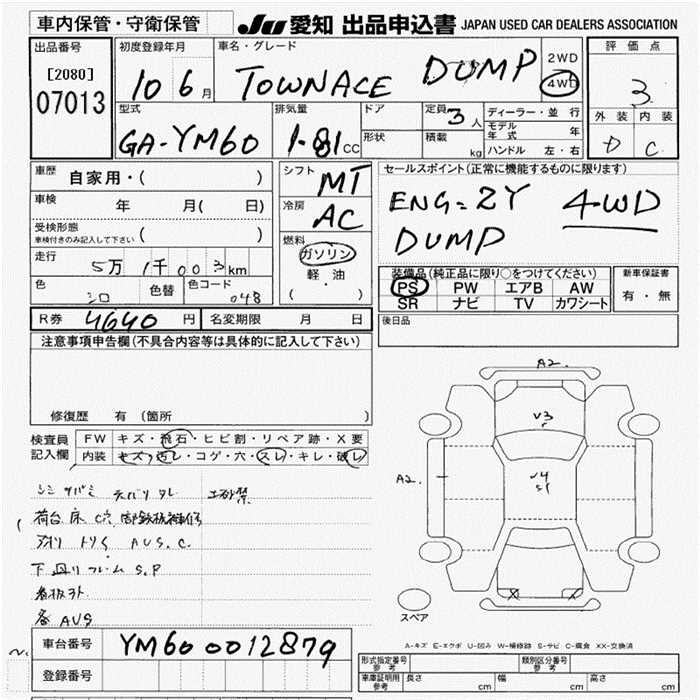 車内保管・守衛保管 JU 愛知 出品申込書 JAPAN USED CAR DEALERS ASSOCIATION
出品番号
[2080]
07013
初度登録年月
10 6月
車名・グレード
TOWNACE DUMP
2WD
4WD
評価点
3
外装 内装
D C
型式
GA-YM60
排気量
1.81cc
ドア
形状
定員 3人
積載 kg
ディーラー・並行
モデル年式 年
ハンドル 左・右
車歴 自家用・( )
車検 年 月( 日)
受検形態
車検付きのみ記入して下さい ( )
走行 5万 1千 003km
色 シロ 色替 色コード 048
シフト MT
冷房 AC
燃料
ガソリン
軽・油
( ・ )
セールスポイント(正常に機能するものに限ります)
ENG=2Y 4WD
DUMP
装備品(純正品に限り○をつけてください)
PS PW エアB AW
SR ナビ TV カワシート
新車保証書
有・無
R券 4640円 名変期限 月 日
後日品
注意事項申告欄(不具合内容等は具体的に記入して下さい)
修復歴 有 (箇所 )
検査員
記入欄
FW キズ・飛石・ヒビ割・リペア跡・X要
内装 キズ・汚レ・コゲ・穴・スレ・キレ・破レ
荷台床
アオリ AUS.C.
下廻りフレーム S.P
AUS
A2.
V3
A2.
V4
S1
X X
スペア
A-キズ E-エクボ U-凹み W-補修跡 S-サビ C-腐食 XX-交換済
車台番号 YM60 0012879
登録番号
形式指定番号 参考
類別区分番号 参考
車庫証明用 参考 長さ cm 幅 cm 高さ cm